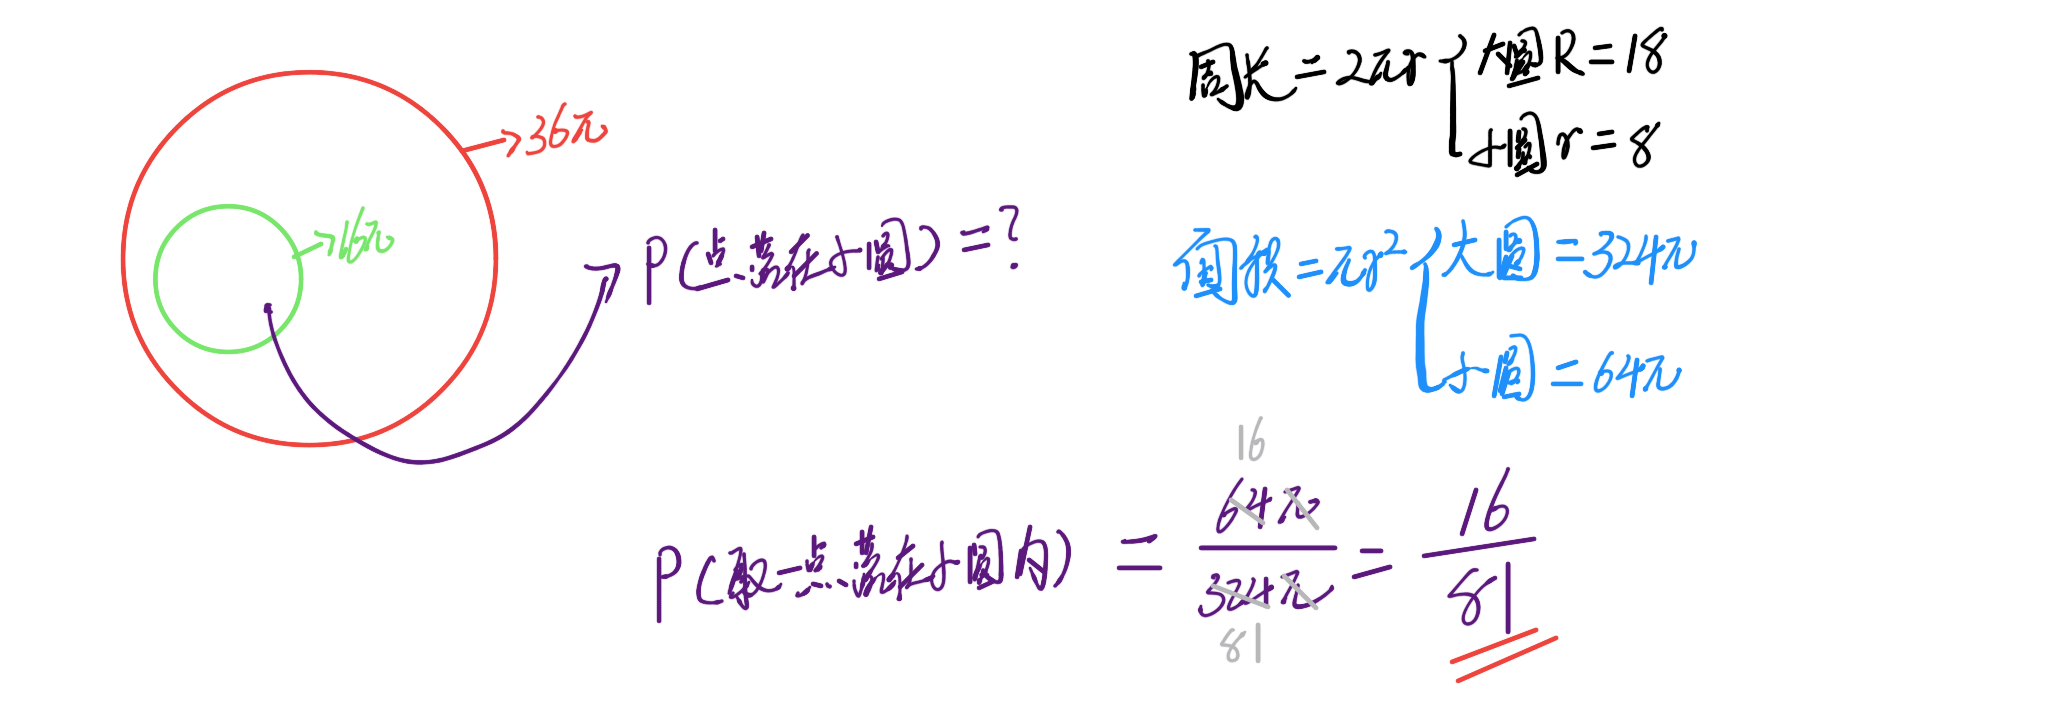 36π
16π
P(点落在小圆)=?
周长=2πr{大圆R=18
小圆r=8
面积=πr²{大圆=324π
小圆=64π
16
P(取一点落在小圆内) = 64π/324π = 16/81
81